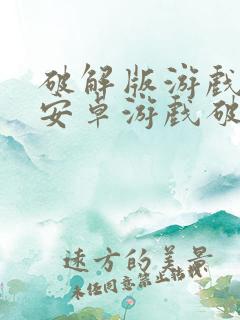 破解版游戏
安卓游戏破
远方的美景
未经同意禁止转载